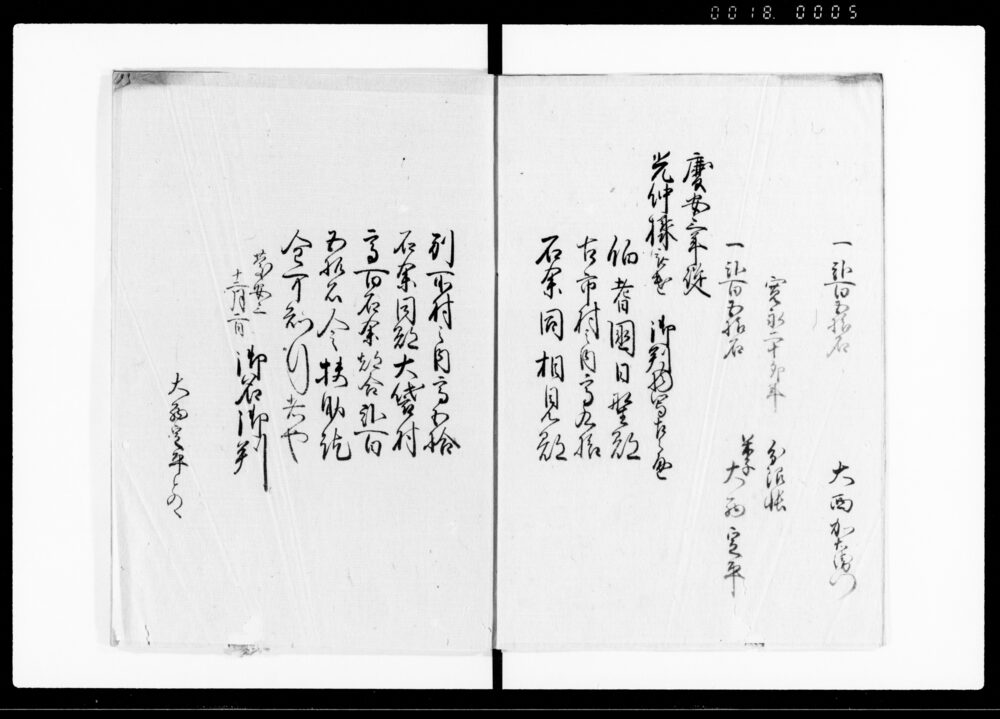 0018. 0005
一弐百五拾石 大西加左衛門
寛永二十年 分限帳
一弐百五拾石 大西定平
慶安三年従
光仲様 御判物
伯耆国日野郡
古市村之内高五拾
石余同相見郡
別所村之内高五拾
石余同郡大袋村
高百石余都合弐百
五拾石令扶助訖
全可知行者也
慶安三
十二月二日 御名御判
大西定平との